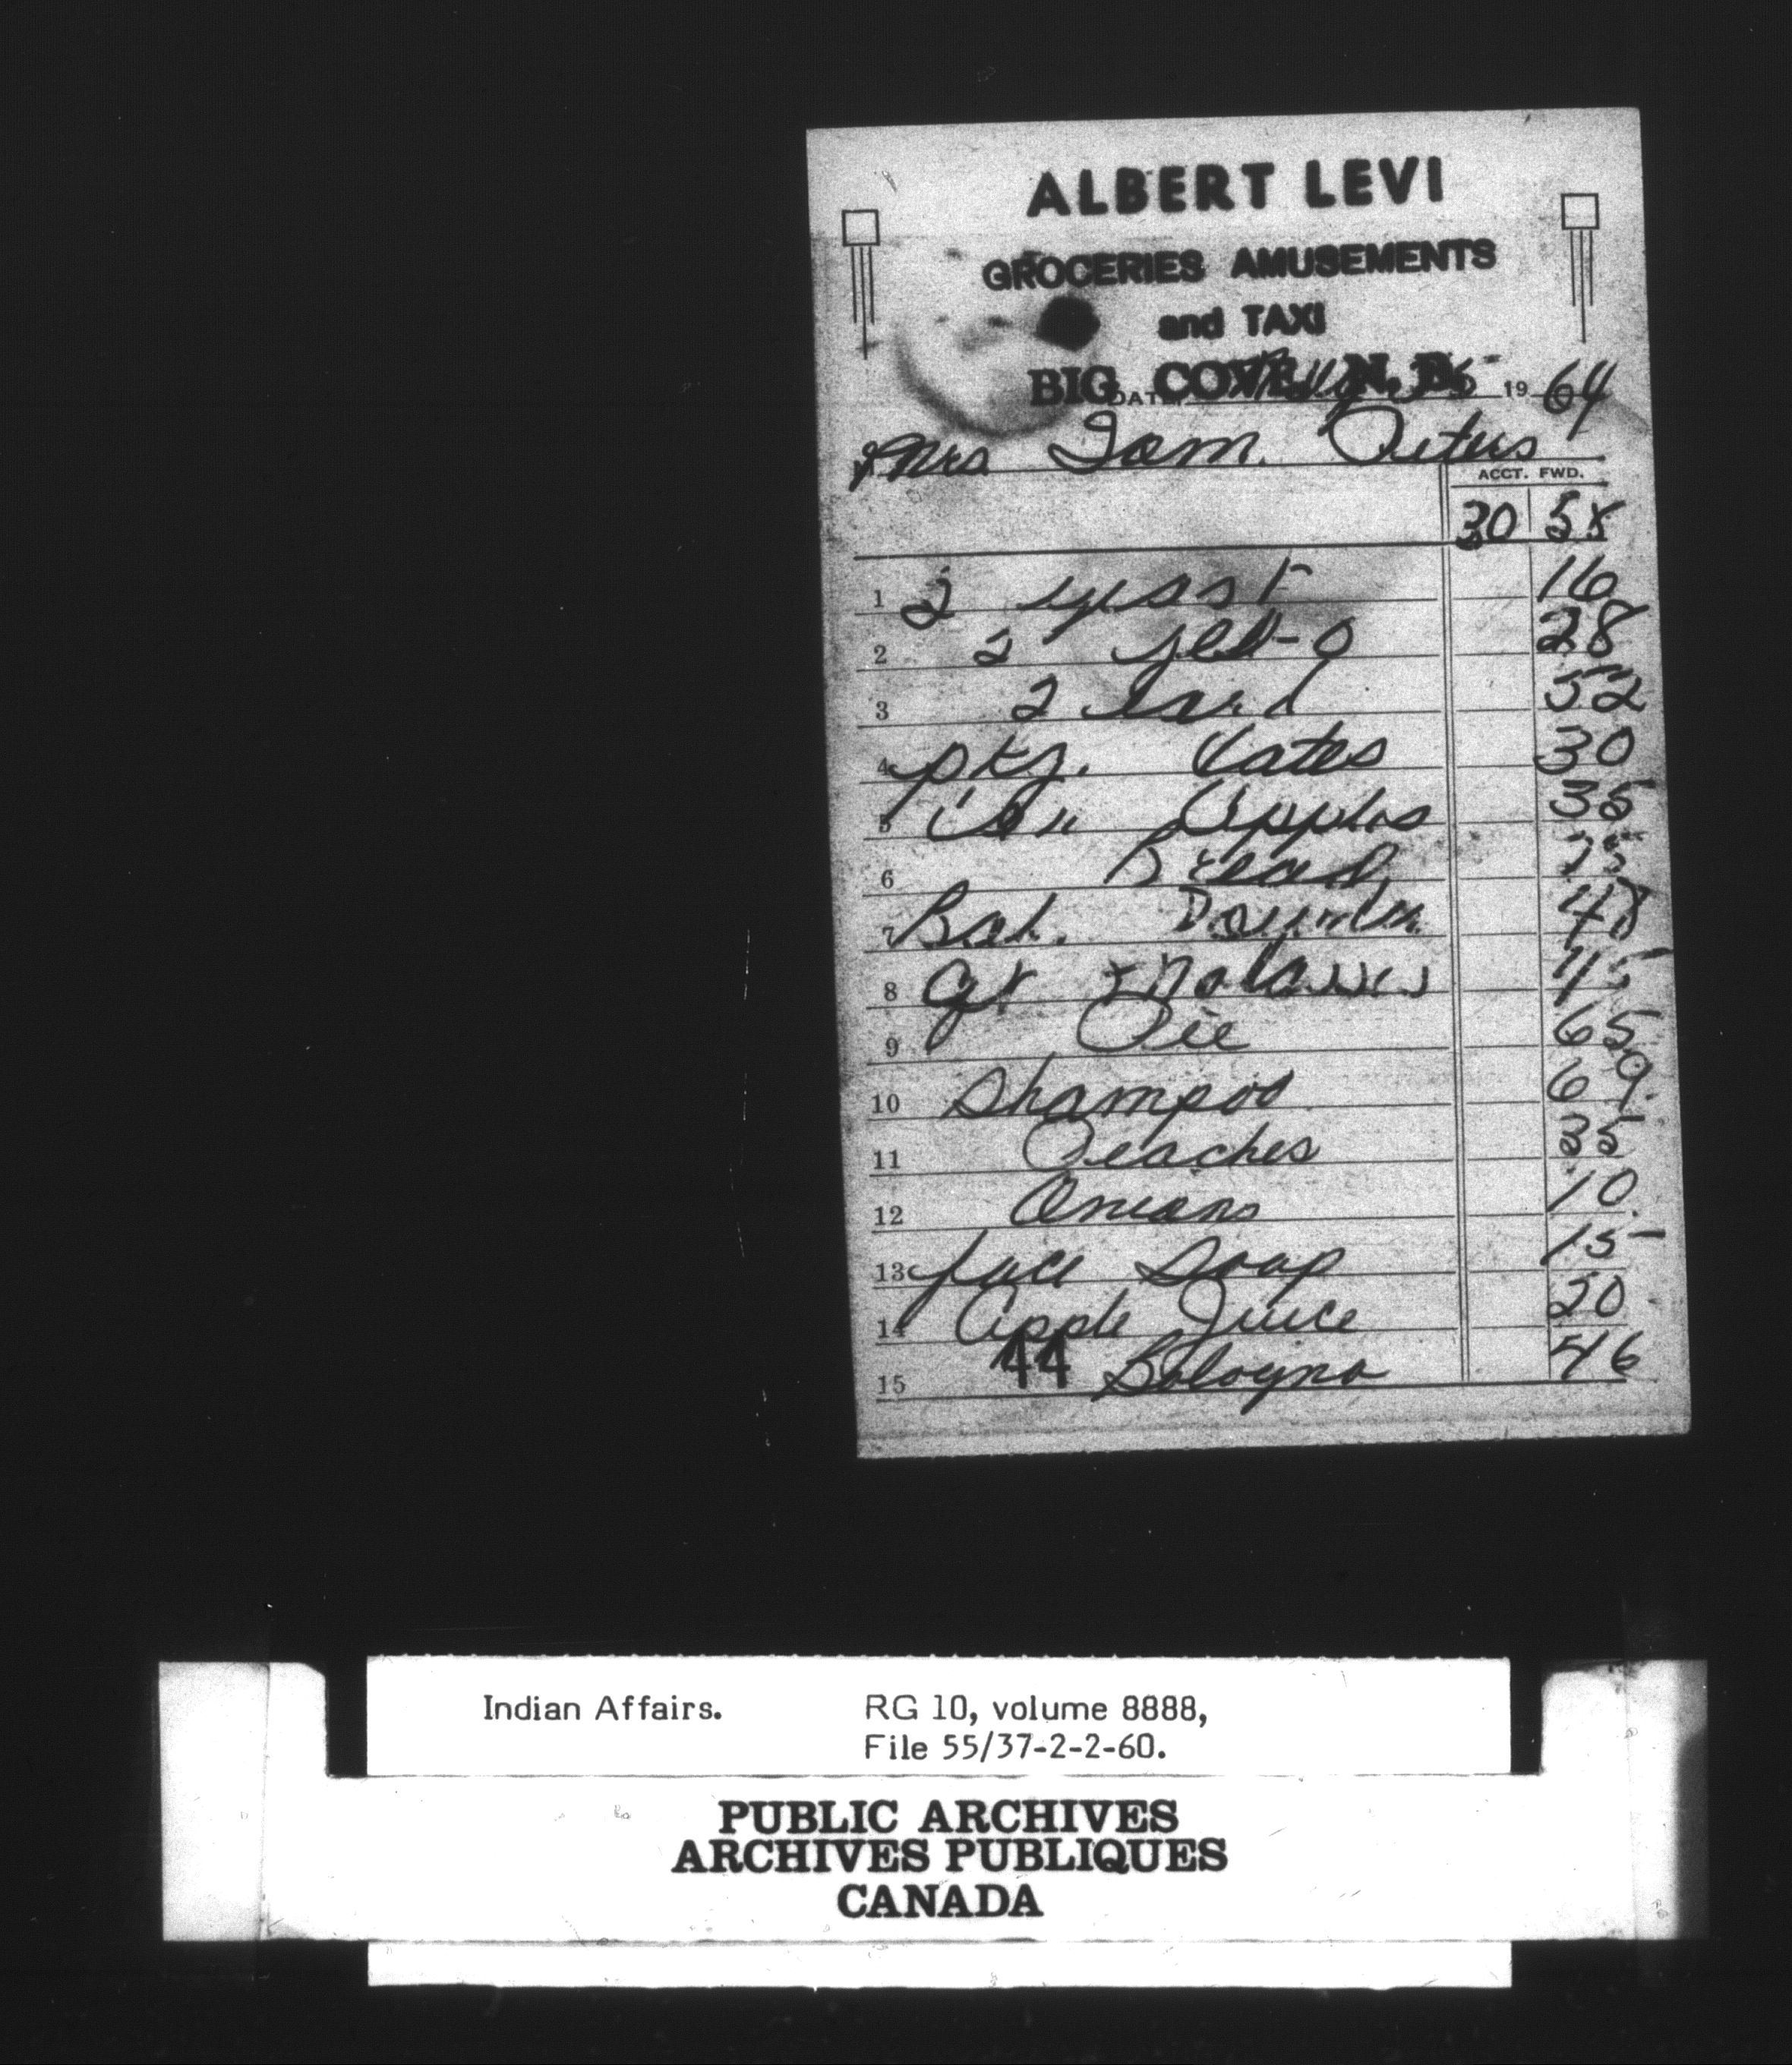 ALBERT LEVI
GROCERIES AMUSEMENTS
and TAXI
BIG COVE, N. B.
DATE 19 64
Mrs Tom. Peters
ACCT. FWD.
30 58
1 2 yeast 16
2 2 Jell-o 28
3 2 Lard 52
4 pkg. Dates 30
5 Apples 35
6 Bread 25
7 48
8 qt Molasses 45
9 Pie 65
10 Shampoo 69
11 Peaches 35
12 Onions 10
13 face Soap 15
14 Apple Juice 20
15 44 Bologna 46
Indian Affairs. RG 10, volume 8888,
File 55/37-2-2-60.
PUBLIC ARCHIVES
ARCHIVES PUBLIQUES
CANADA